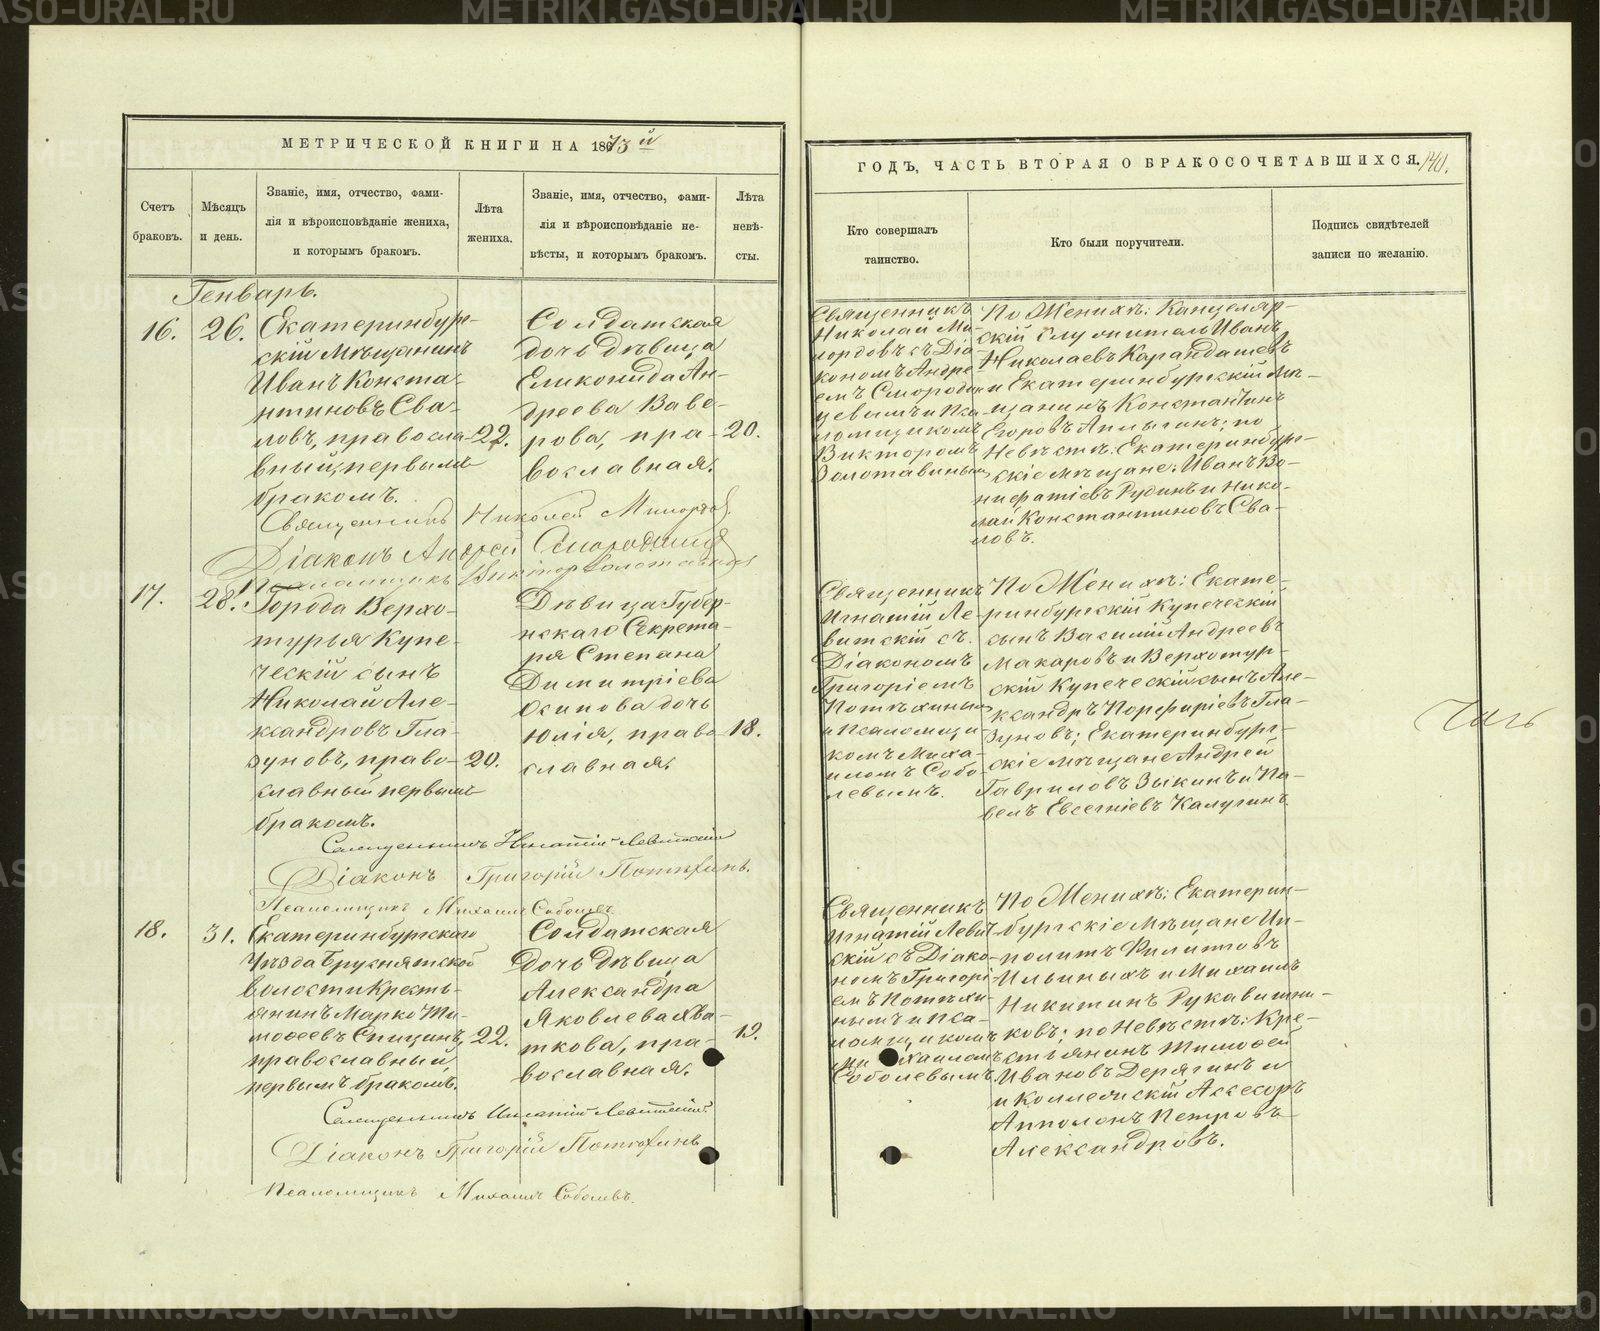 МЕТРИЧЕСКОЙ КНИГИ НА 1873й
Счетъ
браковъ.
Мѣсяцъ
и день.
Званіе, имя, отчество, фами-
лія и вѣроисповѣданіе жениха,
и которымъ бракомъ.
Лѣта
жениха.
Званіе, имя, отчество, фами-
лія и вѣроисповѣданіе не-
вѣсты, и которымъ бракомъ.
Лѣта
невѣ-
сты.
Генварь.
16.
26.
Екатеринбург-
скій Мѣщанинъ
Иванъ Конста-
нтиновъ Сва-
ловъ, правосла-
вный, первымъ
бракомъ.
22.
Солдатская
дочь дѣвица
Еликонида Ан-
дреева Ваве-
рова, пра-
вославная.
20.
Священникъ Николай Милордовъ.
Діаконъ Андрей Смородинцевъ
Псаломщикъ Викторъ Золотавинъ
17.
28.
Города Верхо-
турья Купе-
ческій сынъ
Николай Але-
ксандровъ Гла-
зуновъ, право-
славный первымъ
бракомъ.
20.
Дѣвица Губер-
нскаго Секрета-
ря Степана
Димитріева
Осипова дочь
Юлія, право-
славная.
18.
Священникъ Игнатій Левитскій
Діаконъ Григорій Потѣхинъ.
Псаломщикъ Михаилъ Соболевъ.
18.
31.
Екатеринбургскаго
Уѣзда Бруснятской
волости Кресть-
янинъ Марко Ти-
мофеевъ Спицинъ,
православный,
первымъ бракомъ.
22.
Солдатская
дочь дѣвица
Александра
Яковлева Хва-
ткова, пра-
вославная.
19.
Священникъ Игнатій Левитскій.
Діаконъ Григорій Потѣхинъ
Псаломщикъ Михаилъ Соболевъ.
ГОДЪ, ЧАСТЬ ВТОРАЯ О БРАКОСОЧЕТАВШИХСЯ. 140.
Кто совершалъ
таинство.
Кто были поручители.
Подпись свидѣтелей
записи по желанію.
Священникъ
Николай Ми-
лордовъ съ Діа-
кономъ Андре-
емъ Смородин-
цевымъ и Пса-
ломщикомъ
Викторомъ
Золотавинымъ
По Женихѣ: Канцеляр-
скій служитель Иванъ
Николаевъ Карандашевъ
и Екатеринбургскій Мѣ-
щанинъ Константинъ
Егоровъ Аплыгинъ; по
Невѣстѣ: Екатеринбург-
скіе мѣщане: Иванъ Во-
нифатіевъ Рудинъ и Нико-
лай Константиновъ Сва-
ловъ.
Священникъ
Игнатій Ле-
витскій съ
Діакономъ
Григоріемъ
Потѣхинымъ
и Псаломщи-
комъ Миха-
иломъ Собо-
левымъ.
По Женихѣ: Екате-
ринбургскій Купеческій
сынъ Василій Андреевъ
Макаровъ и Верхотур-
скій Купеческій сынъ Але-
ксандръ Порфиріевъ Гла-
зуновъ; Екатеринбург-
скіе мѣщане Андрей
Гавриловъ Зыкинъ и Па-
велъ Евсегніевъ Калугинъ.
Священникъ
Игнатій Левит-
скій съ Діако-
номъ Григорі-
емъ Потѣхи-
нымъ и Пса-
ломщикомъ
Михаиломъ
Соболевымъ.
По Женихѣ: Екатерин-
бургскіе Мѣщане Ип-
политъ Филипповъ
Ильиныхъ и Михаилъ
Никитинъ Рукавишни-
ковъ; по Невѣстѣ: Кре-
стьянинъ Тимофей
Ивановъ Дерягинъ и
и Коллежскій Ассесоръ
Апполонъ Петровъ
Александровъ.
METRIKI.GASO-URAL.RU